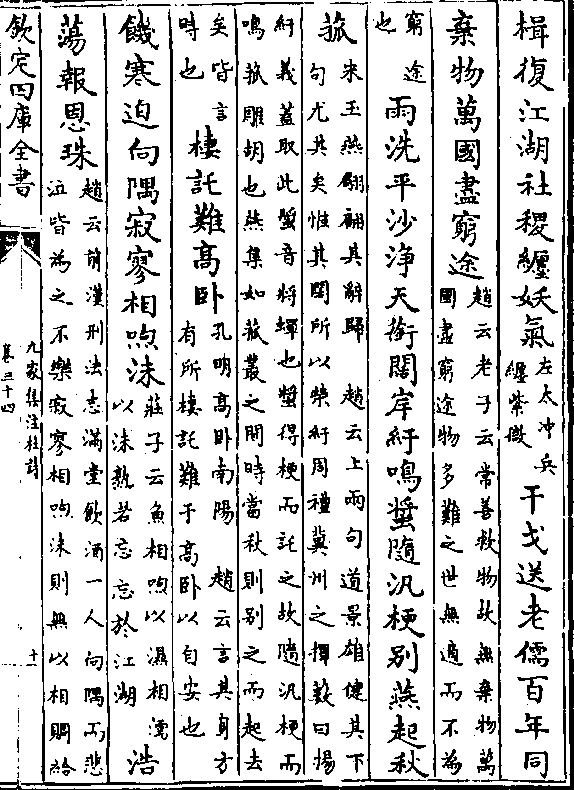 楫復江湖社稷纏妖氣左太冲兵
纏紫微干戈送老儒百年同
棄物萬國盡窮途趙云老子云常善救物故無棄物萬
國盡窮途物多難之世無適而不為
窮途
也雨洗平沙淨天銜闊岸紆鳴螿隨汎梗别燕起秋
菰宋玉燕翩翩其辭歸趙云上兩句道景雄健其下
句尤其矣惟其闊所以縈紆周禮冀州之擇藪曰揚
紆義蓋取此螿音將蟬也螿得梗而託之故隨汎梗而
鳴菰雕胡也燕集如菰叢之間時當秋則别之而起去
矣皆言
時也棲託難高卧孔明高卧南陽趙云言其身方
有所棲託難于高卧以自安也
饑寒迫向隅寂寥相呴沫莊子云魚相呴以濕相濡
以沫孰若忘忘於江湖浩
蕩報恩珠趙云前漢刑法志滿堂飲酒一人向隅而悲
泣皆為之不樂寂寥相呴沫則無以相賙給
欽定四庫全書
九家集注杜詩
卷三十四
十